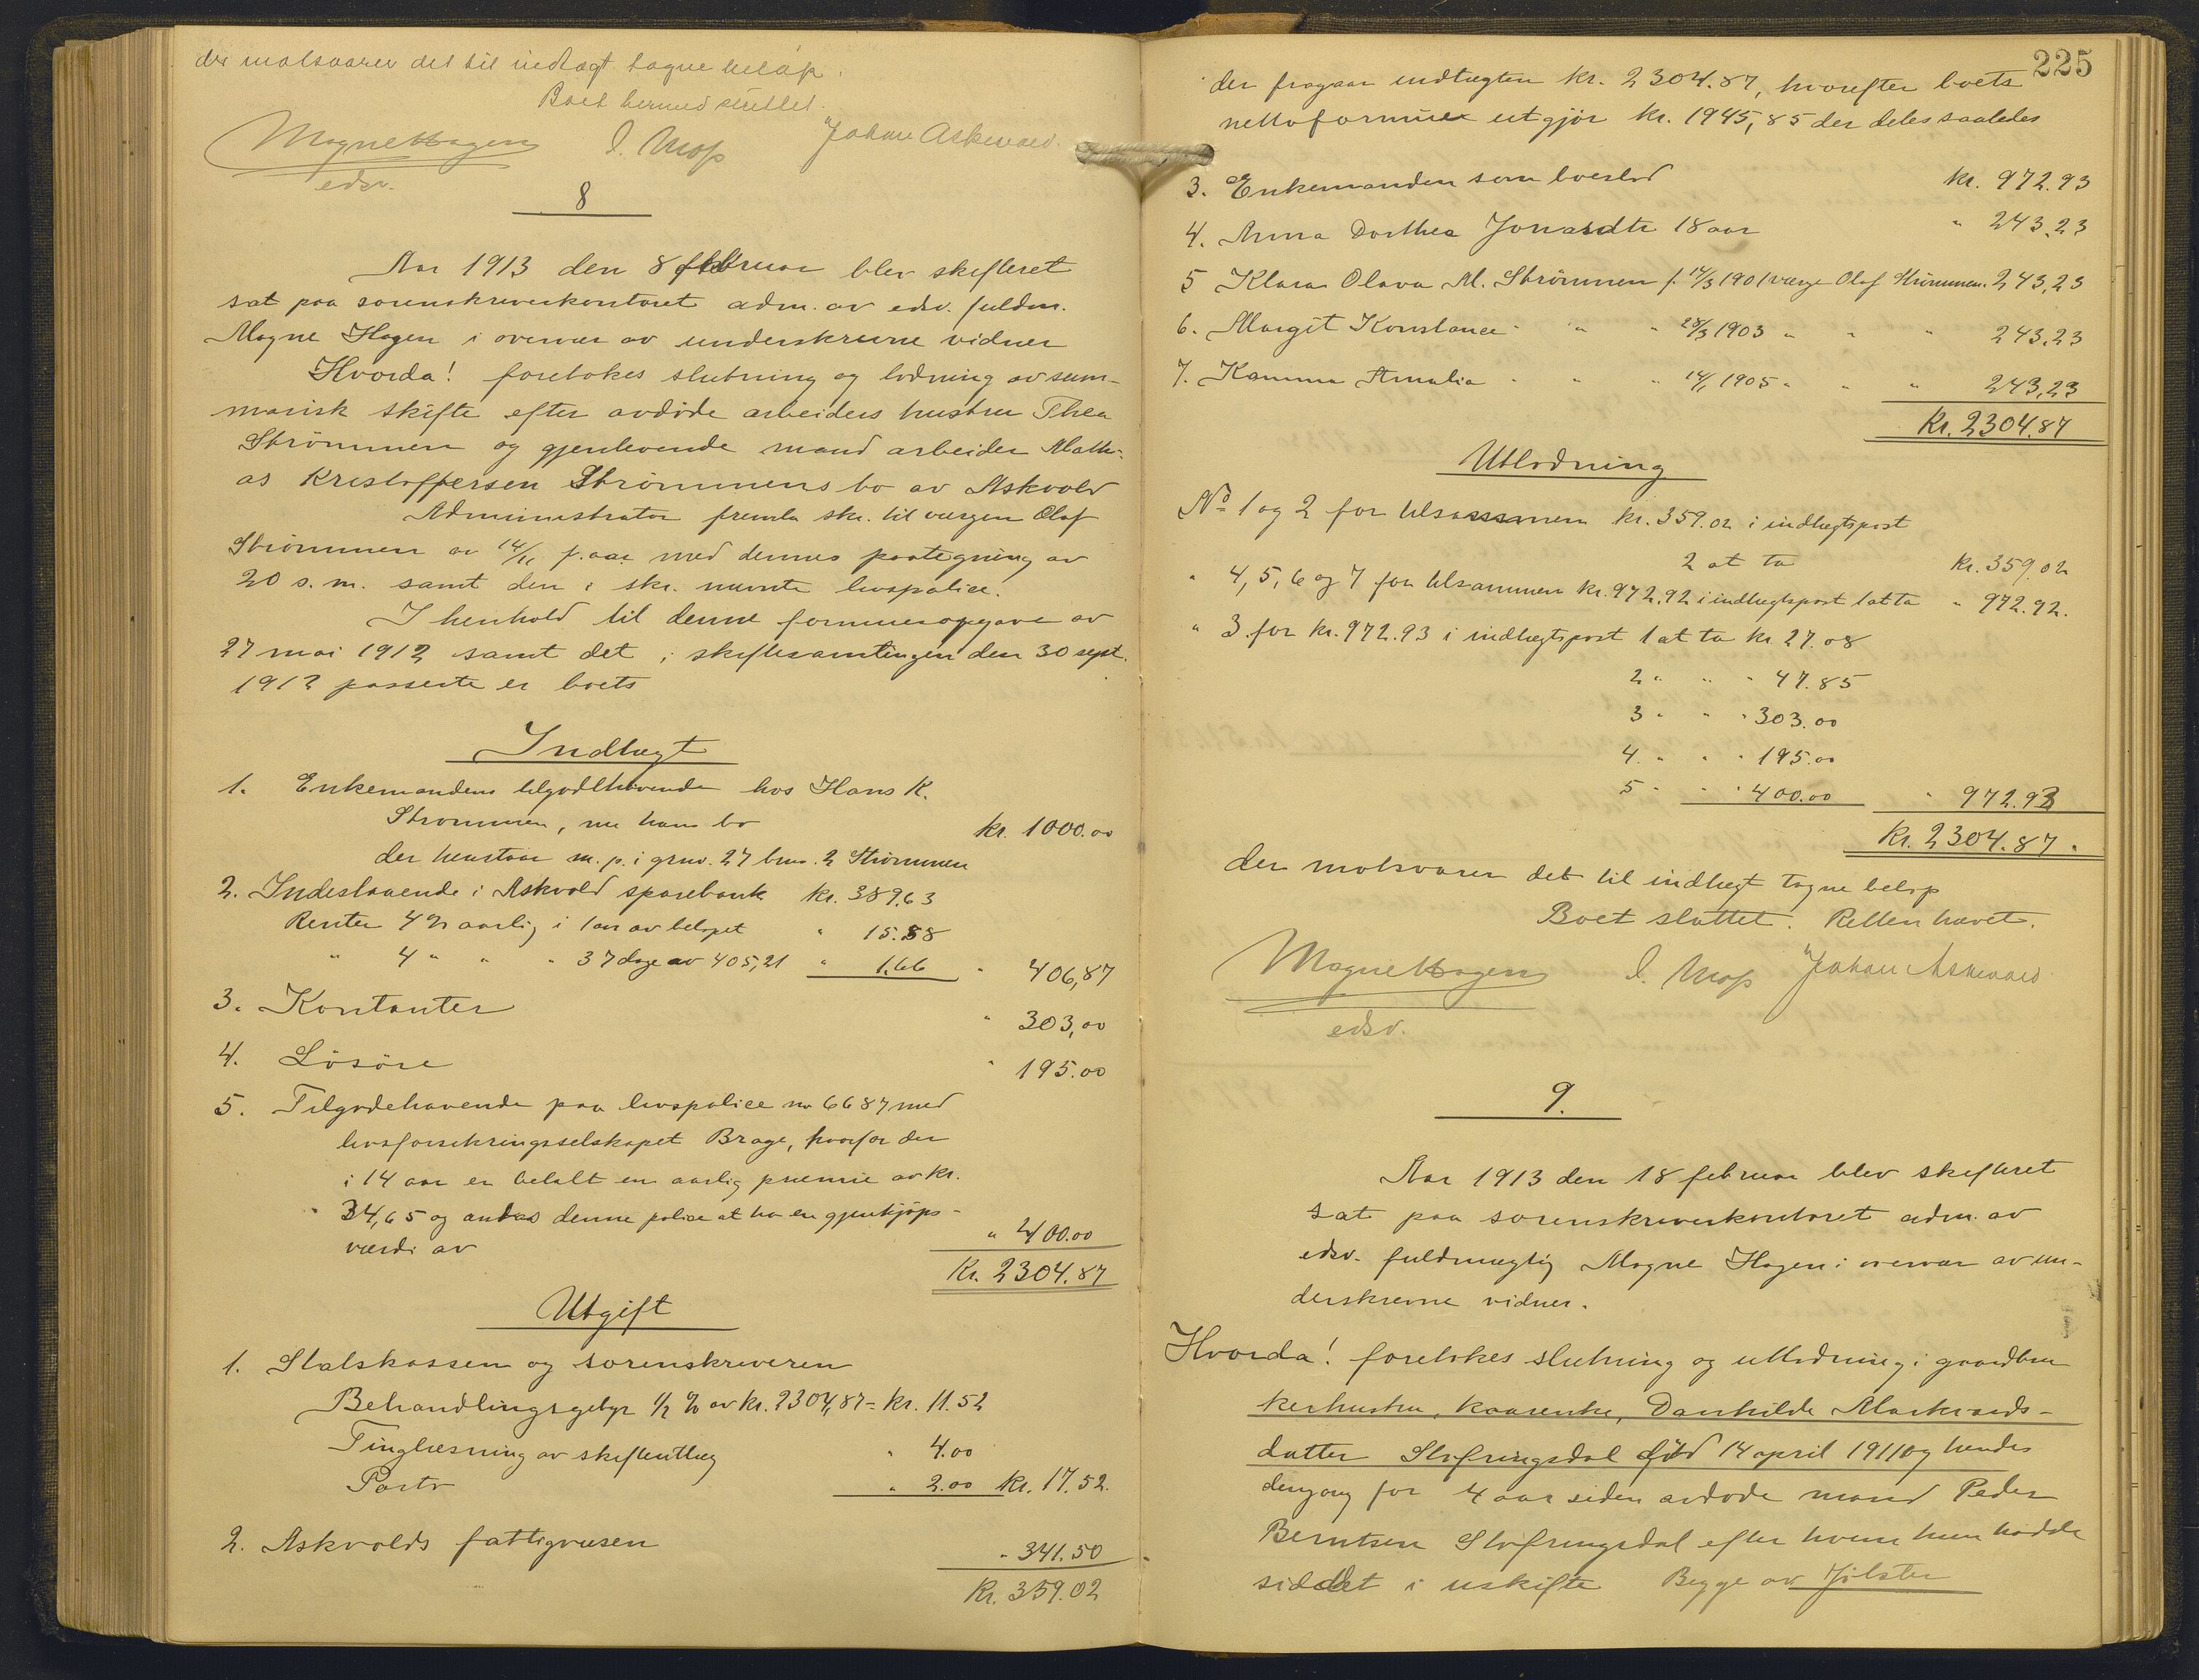 der motsvarer det til indtægt tagne beløp.
Boet hermed sluttet.
Magne Hagen J. Mop Johan Askevold.
edsv.
8
Aar 1913 den 8 februar blev skifteret
sat paa sorenskriverkontoret adm. av edsv. fuldm.
Magne Hagen i overvær av underskrevne vidner
Hvorda! foretokes slutning og lodning av sum-
marisk skifte efter avdöde arbeiders hustru Thea
Strömmen og gjenlevende mand arbeider Math-
as Kristoffersen Strömmens bo av Askvold
Administrator fremla skr. til vergen Olaf
Strömmen av 14/11 f. aar med dennes paategning av
20 s. m. samt den i skr. nævnte livspolice.
I henhold til denne formuesopgave av
27 mai 1912 samt det i skiftesamlingen den 30 sept.
1912 passerte er boets
Indtægt
1. Enkemandens tilgodehavende hos Hans K.
Strømmen, nu hans bo kr. 1000.00
der henstaar m. p. i grno. 27 brno. 2 Strømmen
2. Indestaaende i Askvold sparebank kr. 389.63
Renter 4 % aarlig i 1 aar av beløpet " 15.58
" 4 " " " 37 dage av 405,21 " 1.66 " 406,87
3. Kontanter " 303,00
4. Lösöre " 195.00
5. Tilgodehavende paa livspolice no 6687 med
livsforsikringsselskapet Brage, hvorfor der
i 14 aar er betalt en aarlig præmie av kr.
" 34,65 og antas denne police at ha en gjenkjöps-
værdi av " 400.00
Kr. 2304.87
Utgift
1. Statskassen og sorenskriveren
Behandlingsgebyr 1/2 % av kr. 2304,87 = kr. 11.52
Tinglæsning av skifteutlæg " 4.00
Porto " 2.00 kr. 17.52.
2. Askvolds fattigvæsen " 341.50
Kr. 359.02
225
der fragaar indtægten kr. 2304.87, hvorefter boets
nettoformue utgjör kr. 1945,85 der deles saaledes
3. Enkemanden som boeslod kr. 972.93
4. Anna Dorthea Jonasdtr 18 aar " 243.23
5 Klara Olava M. Strömmen f. 14/3 1901 værge Olaf Strömmen. 243,23
6. Margit Konstance " " " 28/3 1903 " " " 243.23
7. Kamma Amalia " " " 14/1 1905 " " " 243,23
Kr. 2304.87
Utlodning
No 1 og 2 for tilsammen kr. 359.02 i indtægtspost
2 at ta kr. 359.02
" 4, 5, 6 og 7 for tilsammen kr. 972.92 i indtægtspost 1 at ta " 972.92.
" 3 for kr. 972.93 i indtægtspost 1 at ta kr. 27.08
2 " " " 47.85
3 " " " 303.00
4. " " " 195.00
5 " " " 400.00 " 972.93
Kr. 2304.87.
der motsvarer det til indtægt tagne beløp
Boet sluttet. Retten hævet.
Magne Hagen J. Mop Johan Askevold
edsv.
9.
Aar 1913 den 18 februar blev skifteret
sat paa sorenskriverkontoret adm. av
edsv. fuldmægtig Magne Hagen i overvær av un-
derskrevne vidner.
Hvorda! foretokes slutning og utlodning i gaardbru
kerhustru, kaarenke, Danhilde Markvards-
datter Slofringsdal död 14 april 1911 og hendes
dengang for 4 aar siden avdöde mand Peder
Berntsen Slofringsdal efter hvem hun hadde
siddet i uskifte Begge av Jölster